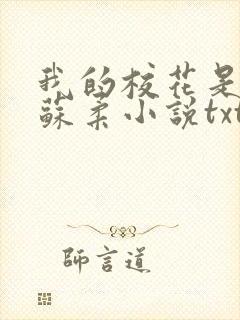 我的校花是
蘇柔小說txt
師言道